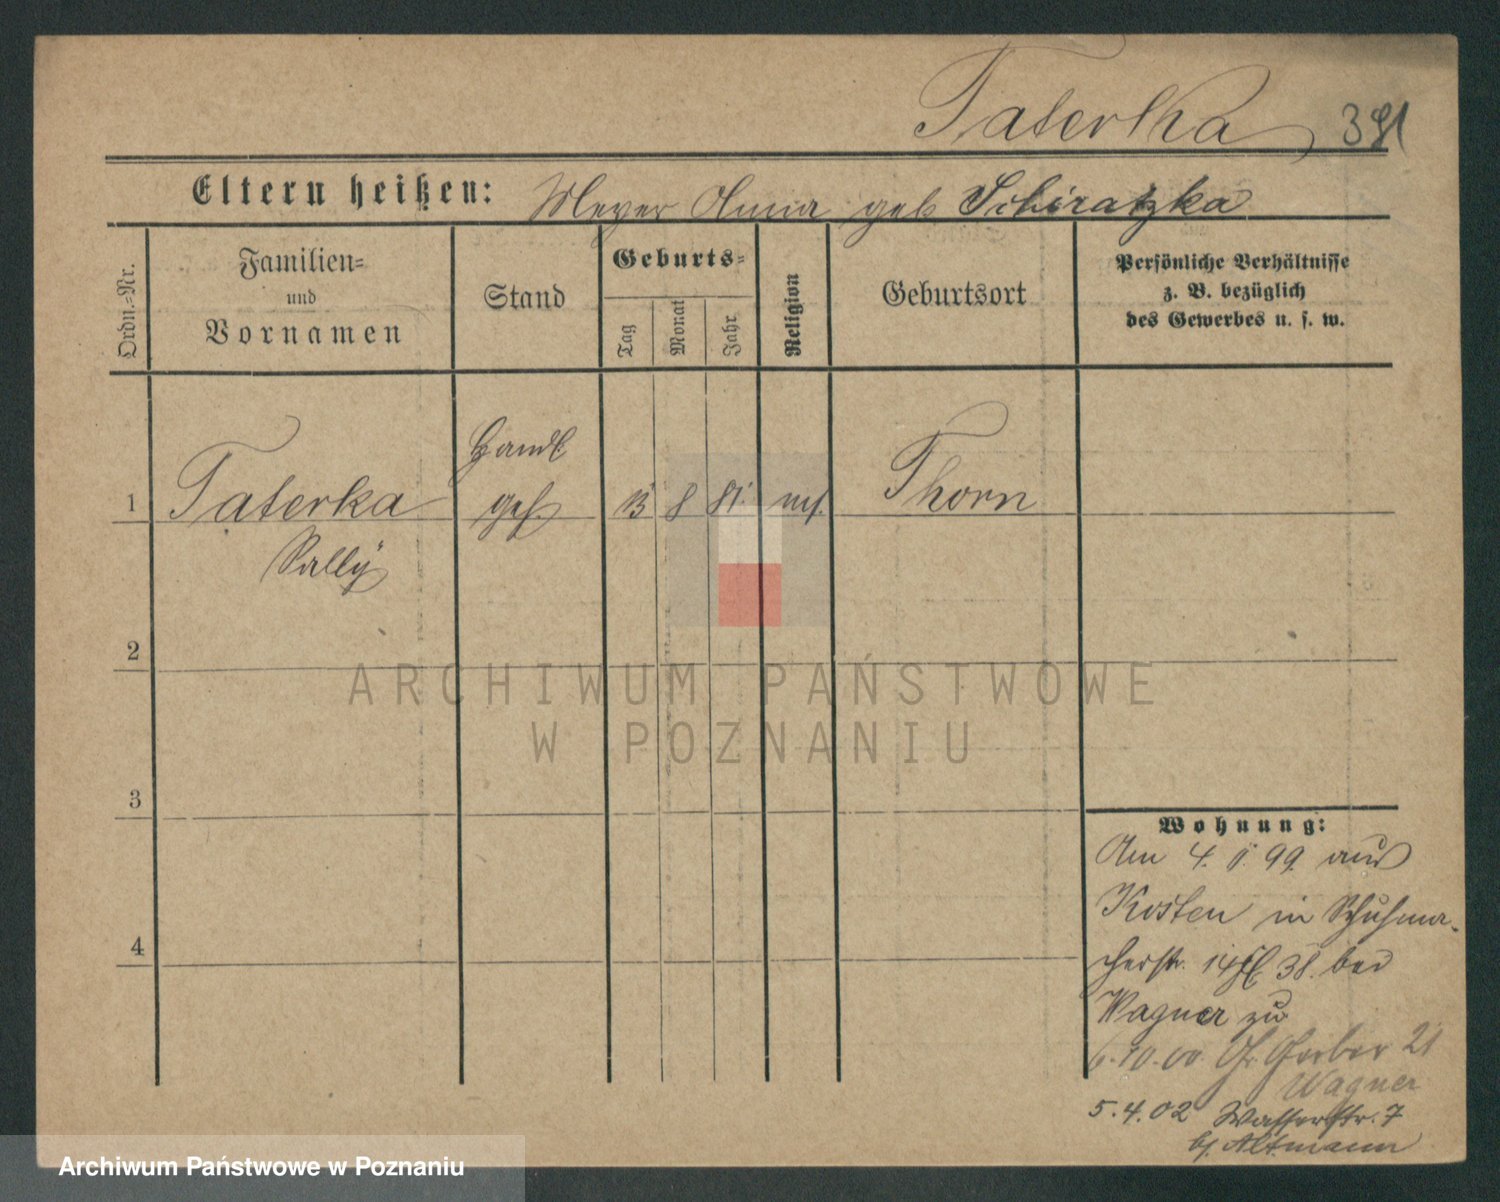 Taterka 381
Eltern heißen: Meyer Anna geb Schiratzka
Ordn.=Nr.
Familien=
und
Vornamen
Stand
Geburts=
Tag
Monat
Jahr
Religion
Geburtsort
Persönliche Verhältnisse
z. B. bezüglich
des Gewerbes u. s. w.
Handl
1 Taterka geh. 13 8 81. mos. Thorn
Sally
2
ARCHIWUM PAŃSTWOWE
W POZNANIU
3
Wohnung:
Am 4. 99. aus
Kosten in Schuhma-
cherstr. 14 38. bei
Wagner zu
6.10.00. Gr. Gerber 21
Wagner
5.4.02 Wasserstr. 7
b/. Altmann
4
Archiwum Państwowe w Poznaniu